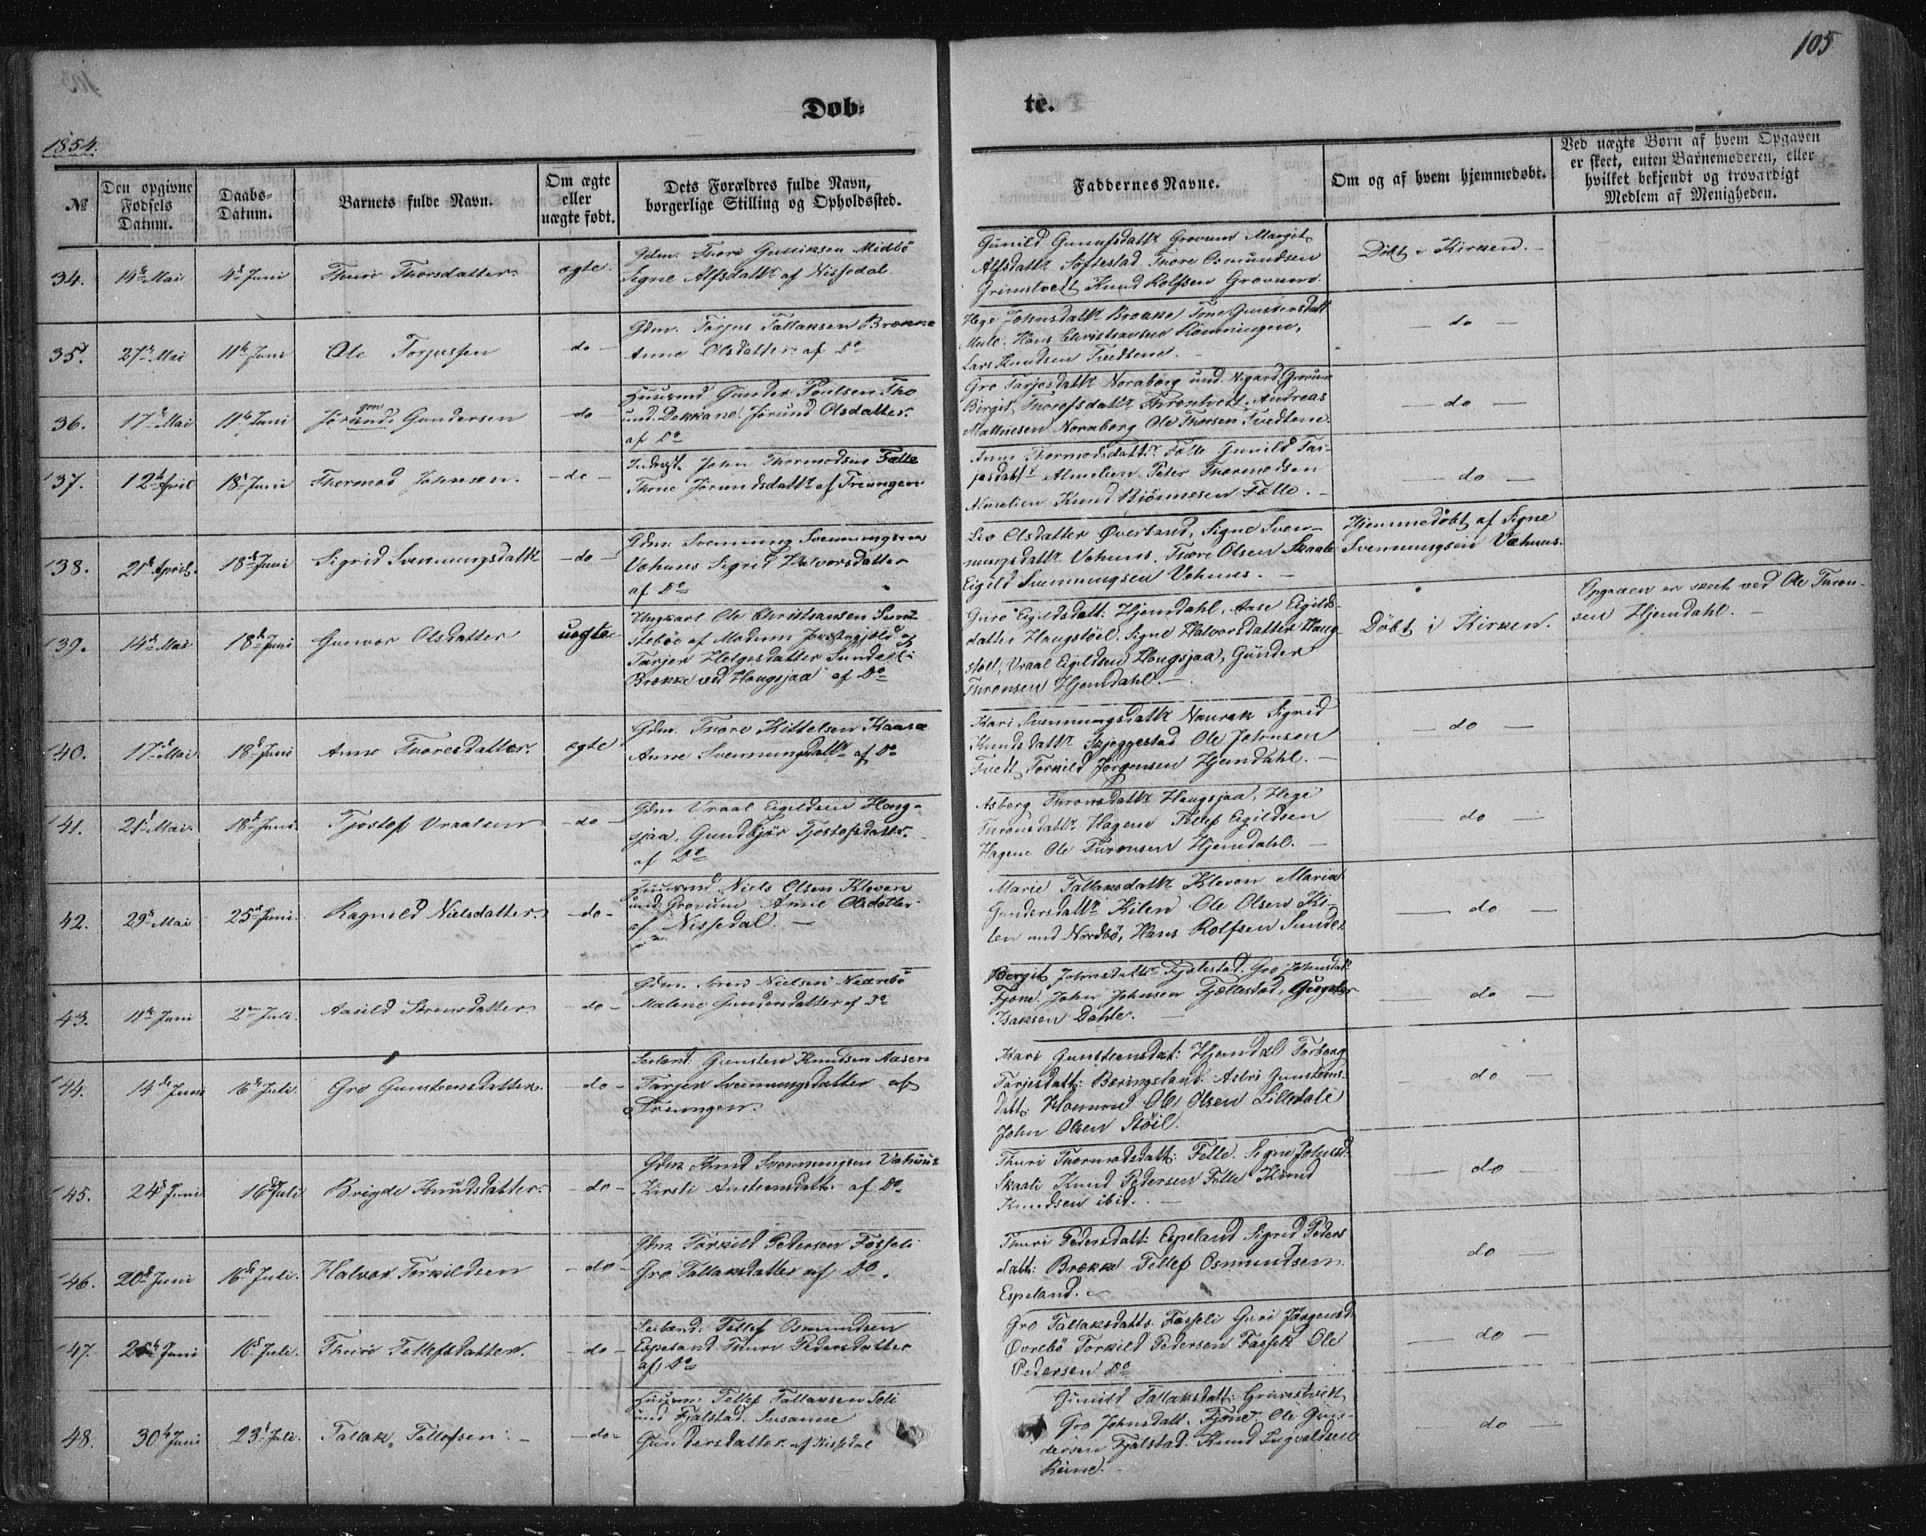 105
Döb-
te.
1854.
№
Den opgivne Födsels Datum.
Daabs-Datum.
Barnets fulde Navn.
Om ægte eller uægte født.
Dets Forældres fulde Navn, borgerlige Stilling og Opholdssted.
Faddernes Navne.
Om og af hvem hjemmedøbt.
Ved uægte Børn af hvem Opgaven er skeet, enten Barnemoderen, eller hvilket bekjendt og troværdigt Medlem af Menigheden.
34. 14de Mai 4de Juni Thuri Thorsdatter. ægte.
Gdm. Thore Gulliksen Midbö
Signe Alfsdattr af Nissedal.
Gunild Gunufsdattr Grovum Margit
Alfsdattr Söftestad Thore Osmundsen
Grimstvedt Knud Rolfsen Grovum.
Döbt i Kirken. –
35. 27de Mai 11te Juni Ole Torjussen do –
Gdm. Torjus Tallaksen Brække
Anne Olsdatter af Do
Hege Johnsdattr Brække Tone Gunstensdatt
Mule. Hans Christiansen Rönningen,
Lars Knudsen Tvedtene. –
– do –
36. 17de Mai 11te Juni Jörund Gundersen do
Huusmd Gunder Poulsen Tho
und. Dekkane. Jörund Olsdatter.
af Do
Gro Tarjesdattr Noraborg und. Nigard Grovum
Birgit Thorofsdattr Throntveit, Andreas
Mathiesen Noraborg Ole Thorsen Tvedtene.
– do –
37. 12te April 18de Juni Thormod Johnsen. – do –
Indrgst. John Thormodsen Fælle
Thone Jörundsdattr af Treungen
Anne Thormodsdattr Fælle Gunild Tar-
jesdattr Almelien Peter Thormodsen
Almelien Knud Björnnesen Fælle. –
– do –
38. 21de April 18de Juni Sigrid Svennungsdattr – do –
Gdm. Svennung Svennungsen
Vahuus Sigrid Halvorsdatter
af Do
Liv Olsdatter Øverland, Signe Sven-
nungsdattr Vahuus. Thore Olsen Skaale
Eigild Svennungsen Vahuus. –
Hjemmedöbt af Signe
Svennungsen Vahuus.
39. 14de Mai 18de Juni Gunvor Olsdatter uægte
Ungkarl Ole Christiansen
af Modum Præstegjeld og
Tarjer Helgesdatter Sundsli
Brække ved Haugsjaa af Do
Guro Eigildsdatt: Hjemdahl, Aase Eigilds-
datter Haugstöel. Signe Halvorsdatter Haug-
stöel, Vraal Eigildsen Haugsjaa, Gunder
Turonsen Hjemdahl. –
Döbt i Kirken.
Opgaven er skeet ved Ole Turon-
sen Hjemdahl. –
40. 17de Mai 18de Juni Anne Thoresdatter. ægte.
Gdm. Thore Kittelsen Kaasa
Anne Svennungsdattr af Do
Kari Svennungsdattr Naurak Sigrid
Knudsdattr Skjeggestad Ole Johnsen
Tvedt Torkild Jörgensen Hjemdahl. –
– do –
41. 21de Mai 18de Juni Tjostof Vraalsen – do –
Gdm Vraal Eigildsen Haug-
sjaa. Gundbjör Tjostofsdatter.
af Do
Asberg Turonsdattr Haugsjaa, Hege
Turonsdattr Hagene Tellef Eigildsen
Hagene Ole Turonsen Hjemdahl. –
– do –
42. 29de Mai 25de Juni. Ragnild Nielsdatter. – do –
Huusmd Niels Olsen Kleven
und. Grovum Anne Olsdatter
af Nissedal. –
Marie Tallaksdattr Kleven Maria
Gundersdattr Kilen Ole Olsen Ki-
len und Nordbö, Hans Rolfsen Sundet
– do –
43. 11te Juni 2den Juli. Aasild Sörensdatter. do –
Gdm. Sören Nielsen Nærebö
Malene Gundersdatter af Do
Bergit Johnsdattr Fjælestad. Gro Johnsdatt.
Fjone. John Johnsen Fjællestad,
Isaksen Dahle. –
– do –
44. 14de Juni 16de Juli. Gro Gunsteensdatter. – do –
Leiland: Gunsten Knudsen Aasen
Tarjer Svennungsdatter af
Treungen.
Kari Gunsteensdat: Hjemdal Torborg
Tarjesdatt: Bæringsland. Astri Gunsteens-
datt: Ole Olsen Lilledale
John Olsen Stöil.
– do –
45. 24de Juni 16de Juli Brigde Knudsdatter. – do –
Gdm. Knud Svennungsen Vahuus
Kirsti Austeensdatt. af Do
Thuri Thormodsdatt: Felle. Signe Johnsd.
Skaali Knud Pedersen Felle Knud
Knudsen ibid. –
– do –
46. 20de Juni 16de Juli. Halvor Torkildsen – do –
Gdm. Torkild Pedersen Fosseli
Gro Tallaksdatter af Do.
Thuri Pedersdatt: Espeland Sigrid Peders
datt: Brække Tellef Osmundsen
Espeland. –
– do –
47. Juni 16de Juli. Thuri Tellefsdatter. – do –
Leilænd. Tellef Osmundsen
Espeland Thuri Pedersdatter
af Do
Gro Tallaksdatt. Fosseli Guri Jörgensd.
Övrebö Torkild Pedersen Fosseli Ole
Pedersen Do
– do –
48. 30te Juni 23de Juli. Tallak Tellefsen. – – do –
Huusm: Tellef Tallaksen Soli
und Fjalstad. Susanne
Gundersdatter af Nissedal
Gunild Tallaksdatt: Grimstveit
Gro Johnsdatt. Fjone. Ole Gun-
dersen Fjalstad. Knud Ingvaldsen
Reine. –
– do –